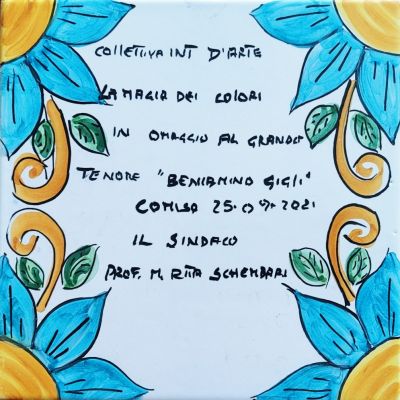 COLLETTIVA INT D'ARTE
LA MAGIA DEI COLORI
IN OMAGGIO AL GRANDE
TENORE "BENIAMINO GIGLI"
COMISO 25.09.2021
IL SINDACO
PROF. M. RITA SCHEMBARI